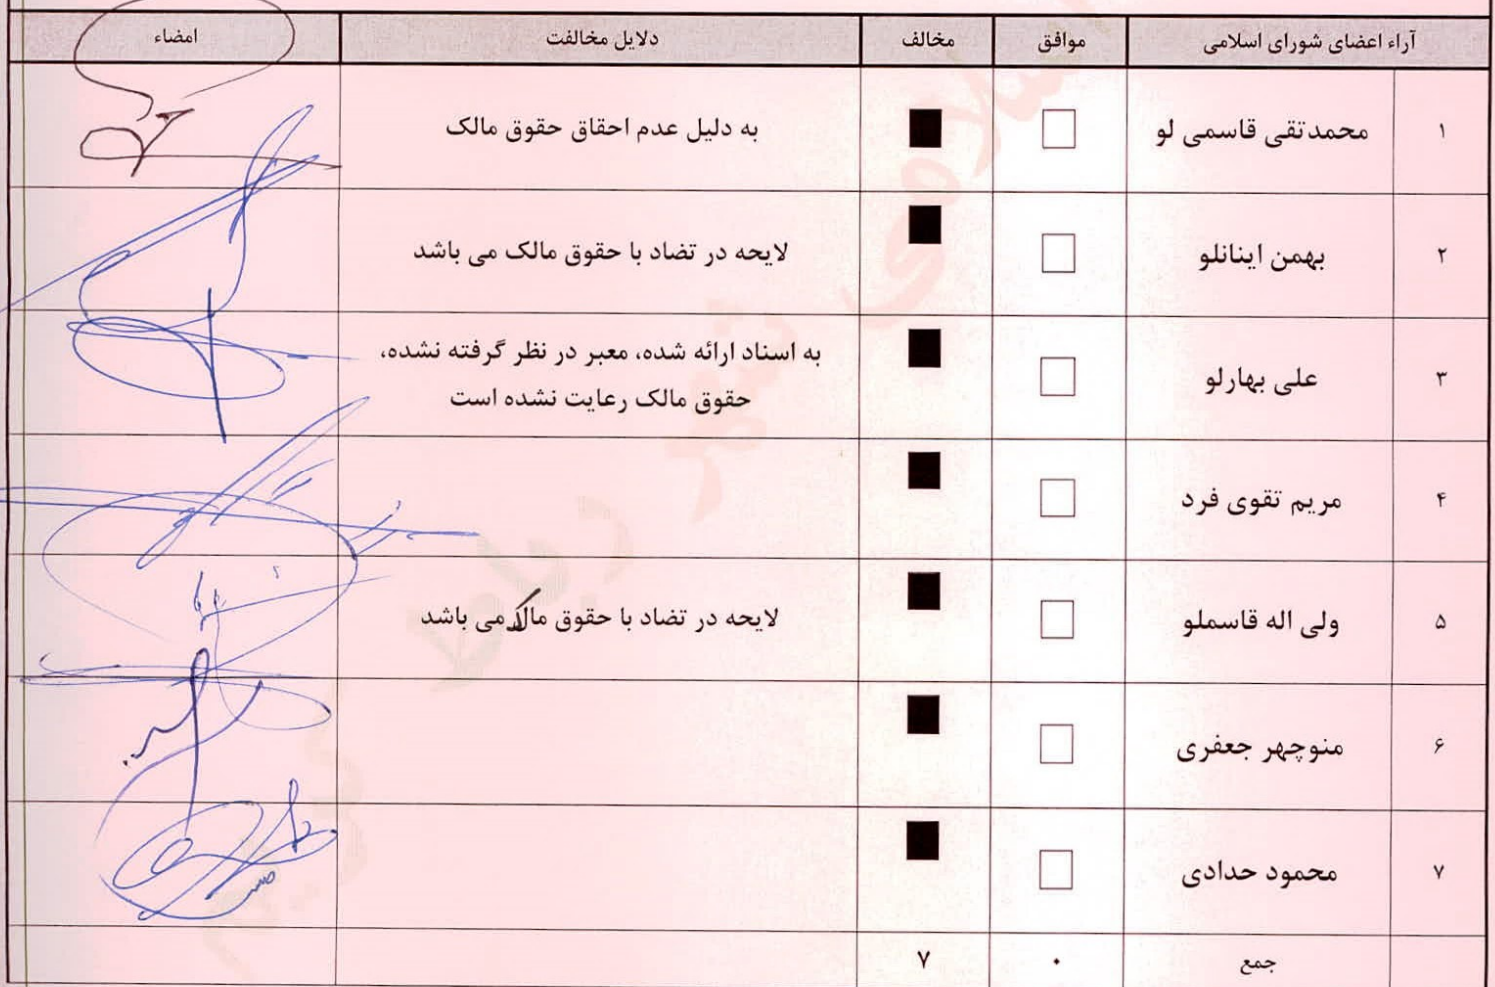 آراء اعضای شورای اسلامی موافق مخالف دلایل مخالفت امضاء
۱ محمدتقی قاسمی لو به دلیل عدم احقاق حقوق مالک
۲ بهمن اینانلو لایحه در تضاد با حقوق مالک می باشد
۳ علی بهارلو به اسناد ارائه شده، معبر در نظر گرفته نشده،
حقوق مالک رعایت نشده است
۴ مریم تقوی فرد
۵ ولی اله قاسملو لایحه در تضاد با حقوق مالک می باشد
۶ منوچهر جعفری
۷ محمود حدادی
جمع ۰ ۷
شورای اسلامی شهر رباط کریم